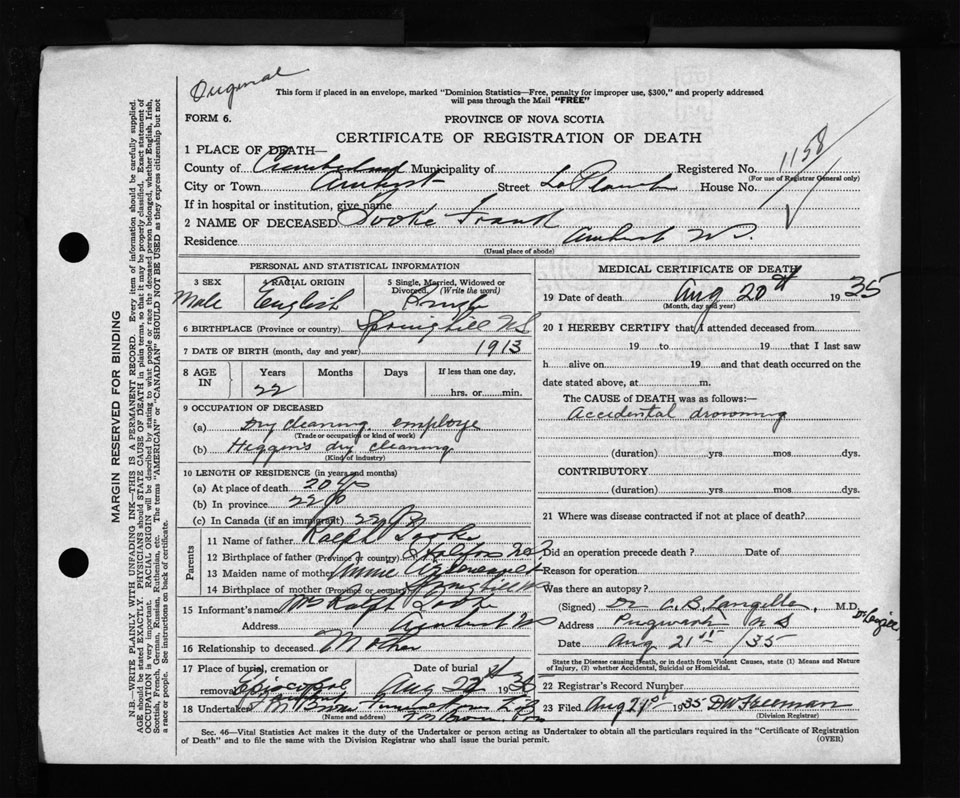 Original
This form if placed in an envelope, marked "Dominion Statistics—Free, penalty for improper use, $300," and properly addressed
will pass through the Mail "FREE"
FORM 6.
PROVINCE OF NOVA SCOTIA
CERTIFICATE OF REGISTRATION OF DEATH
1158
1 PLACE OF DEATH—
County of Cumberland Municipality of Registered No.
(For use of Registrar General only)
City or Town Amherst Street LaPlanche House No.
If in hospital or institution, give name
2 NAME OF DECEASED Tooke Frank
Residence Amherst N.S.
(Usual place of abode)
PERSONAL AND STATISTICAL INFORMATION
3 SEX
Male
4 RACIAL ORIGIN
English
5 Single, Married, Widowed or
Divorced, (Write the word)
Single
6 BIRTHPLACE (Province or country) Springhill NS
7 DATE OF BIRTH (month, day and year) 1913
8 AGE IN
Years Months Days If less than one day,
22
hrs. or min.
9 OCCUPATION OF DECEASED
(a) Dry cleaning employe
(Trade or occupation or kind of work)
(b) Heggan's dry cleaning
(Kind of industry)
10 LENGTH OF RESIDENCE (in years and months)
(a) At place of death 20 yrs
(b) In province 22
(c) In Canada (if an immigrant) 22
Parents
11 Name of father Ralph Tooke
12 Birthplace of father (Province or country) Halifax
13 Maiden name of mother Annie
14 Birthplace of mother (Province or country) Springhill
15 Informant's name Mrs Ralph Tooke
Address Amherst NS
16 Relationship to deceased Mother
17 Place of burial, cremation or Date of burial
removal Episcopal Aug 22nd 1935
18 Undertaker Brown
(Name and address)
MEDICAL CERTIFICATE OF DEATH
19 Date of death Aug 20th 1935
(Month, day and year)
20 I HEREBY CERTIFY that I attended deceased from
19 to 19 that I last saw
h alive on 19 and that death occurred on the
date stated above, at m.
The CAUSE of DEATH was as follows:—
Accidental drowning
(duration) yrs. mos. dys.
CONTRIBUTORY
(duration) yrs. mos. dys.
21 Where was disease contracted if not at place of death?
Did an operation precede death? Date of
Reason for operation
Was there an autopsy?
(Signed) Dr C. B. Langille, M.D.
Address Pugwash NS
Date Aug 21st /35
State the Disease causing Death, or in death from Violent Causes, state (1) Means and Nature
of Injury, (2) whether Accidental, Suicidal or Homicidal.
22 Registrar's Record Number
23 Filed Aug 21st 1935
(Division Registrar)
Sec. 46—Vital Statistics Act makes it the duty of the Undertaker or person acting as Undertaker to obtain all the particulars required in the "Certificate of Registration
of Death" and to file the same with the Division Registrar who shall issue the burial permit.
(OVER)
MARGIN RESERVED FOR BINDING
N.B. WRITE PLAINLY WITH UNFADING INK—THIS IS A PERMANENT RECORD. Every item of information should be carefully supplied.
AGE should be stated EXACTLY. PHYSICIANS should STATE CAUSE OF DEATH in plain terms, so that it may be properly classified. Exact statement of
OCCUPATION is very important. RACIAL ORIGIN will be described by stating to what people or race the deceased person belonged, whether English, Irish,
Scottish, French, German, Russian, Ruthenian, etc. The terms "AMERICAN" or "CANADIAN" SHOULD NOT BE USED as they express citizenship but not
a race or people. See instructions on back of certificate.